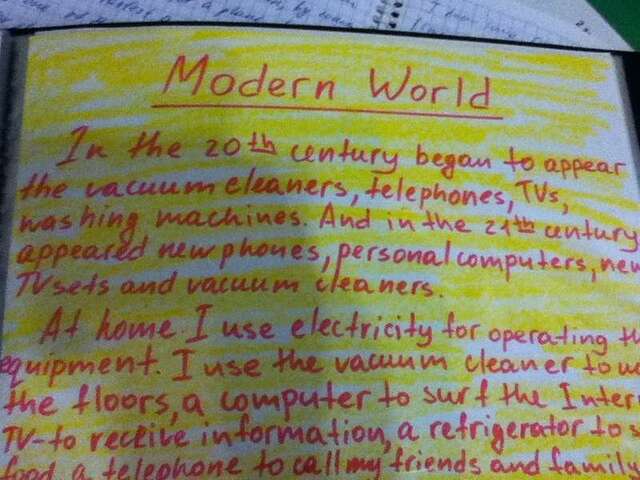 Modern World
In the 20th century began to appear
the vacuum cleaners, telephones, TVs,
washing machines. And in the 21th century
appeared new phones, personal computers, new
TV sets and vacuum cleaners.
At home I use electricity for operating th
equipment I use the vacuum cleaner to
the floors, a computer to surf the Inter
TV-to receive information, a refrigerator to s
food a telephone to call my friends and family